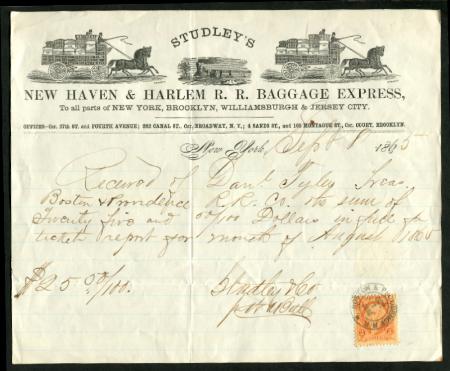 STUDLEY'S
NEW HAVEN & HARLEM R. R. BAGGAGE EXPRESS,
To all parts of NEW YORK, BROOKLYN, WILLIAMSBURGH & JERSEY CITY.
OFFICES-Cor. 27th ST. and FOURTH AVENUE; 262 CANAL ST., Cor. BROADWAY, N. Y.; 4 SANDS ST., and 105 MONTAGUE ST., Cor. COURT, BROOKLYN.
New York, Sept 8 1865
Received of Danl. Tyler Treas.
Boston & Providence R.R. Co. the sum of
Twenty five and 00/100 Dollars in full for
tickets report for month of August 1865
$25 00/100. Studley & Co